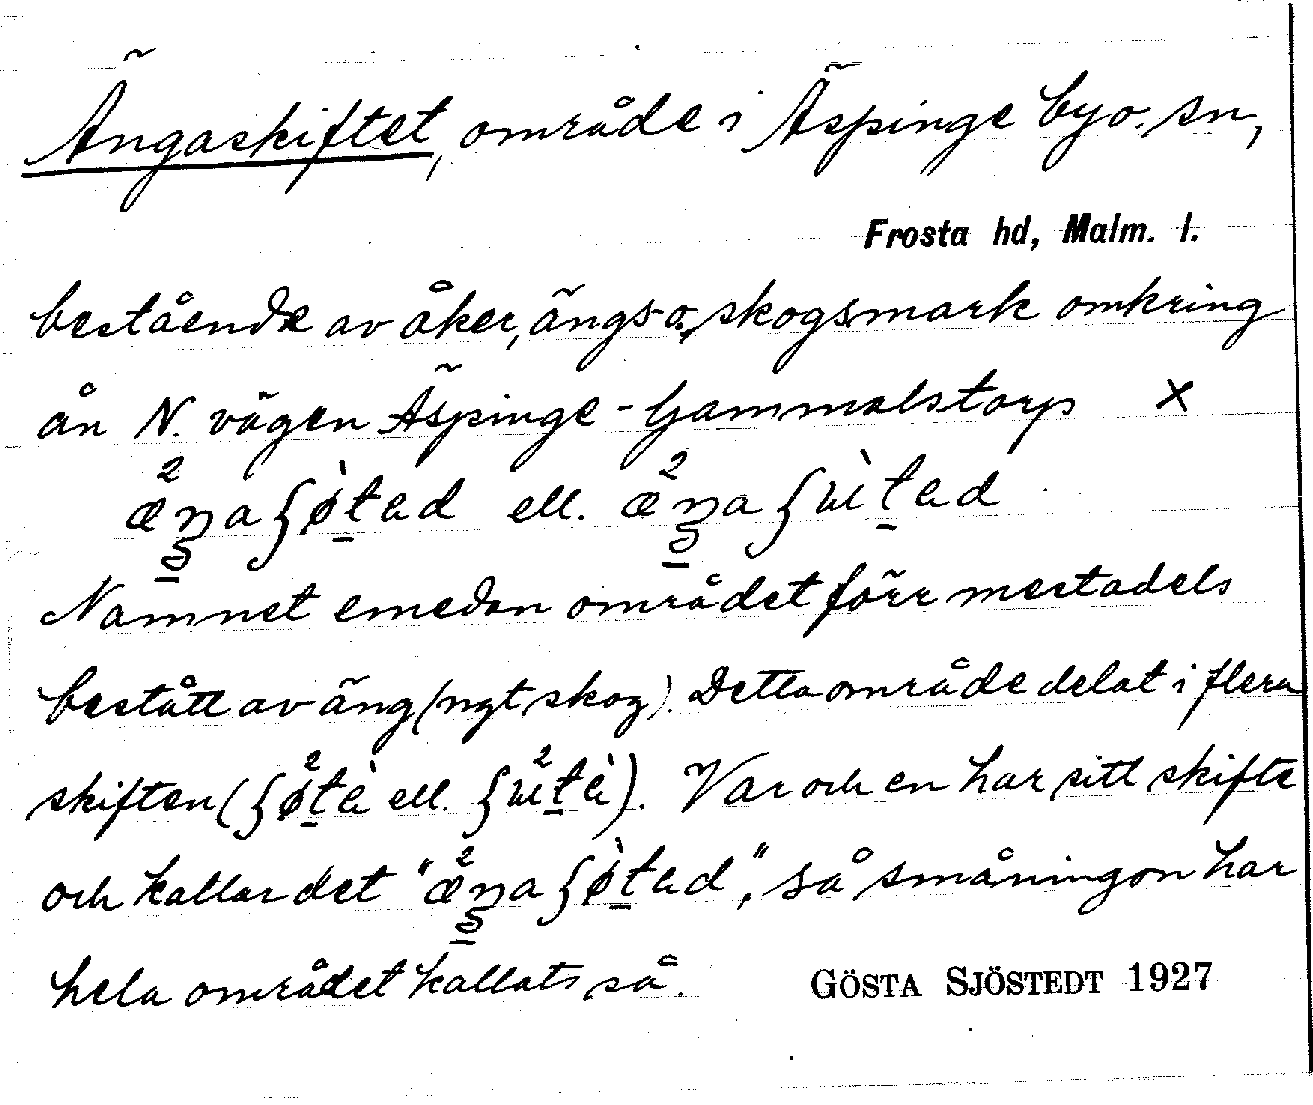 Ängaskiftet, område i Äspinge by o. sn,
Frosta hd, Malm. l.
bestående av åker, ängs- o. skogsmark omkring
ån N. vägen Äspinge - Gammalstorp X
ell.
Namnet emedan området förr mestadels
bestått av äng (ngt skog). Detta område delat i flera
skiften ( ell. ). Var och en har sitt skifte
och kallar det " ", så småningom har
hela området kallats så.
GÖSTA SJÖSTEDT 1927